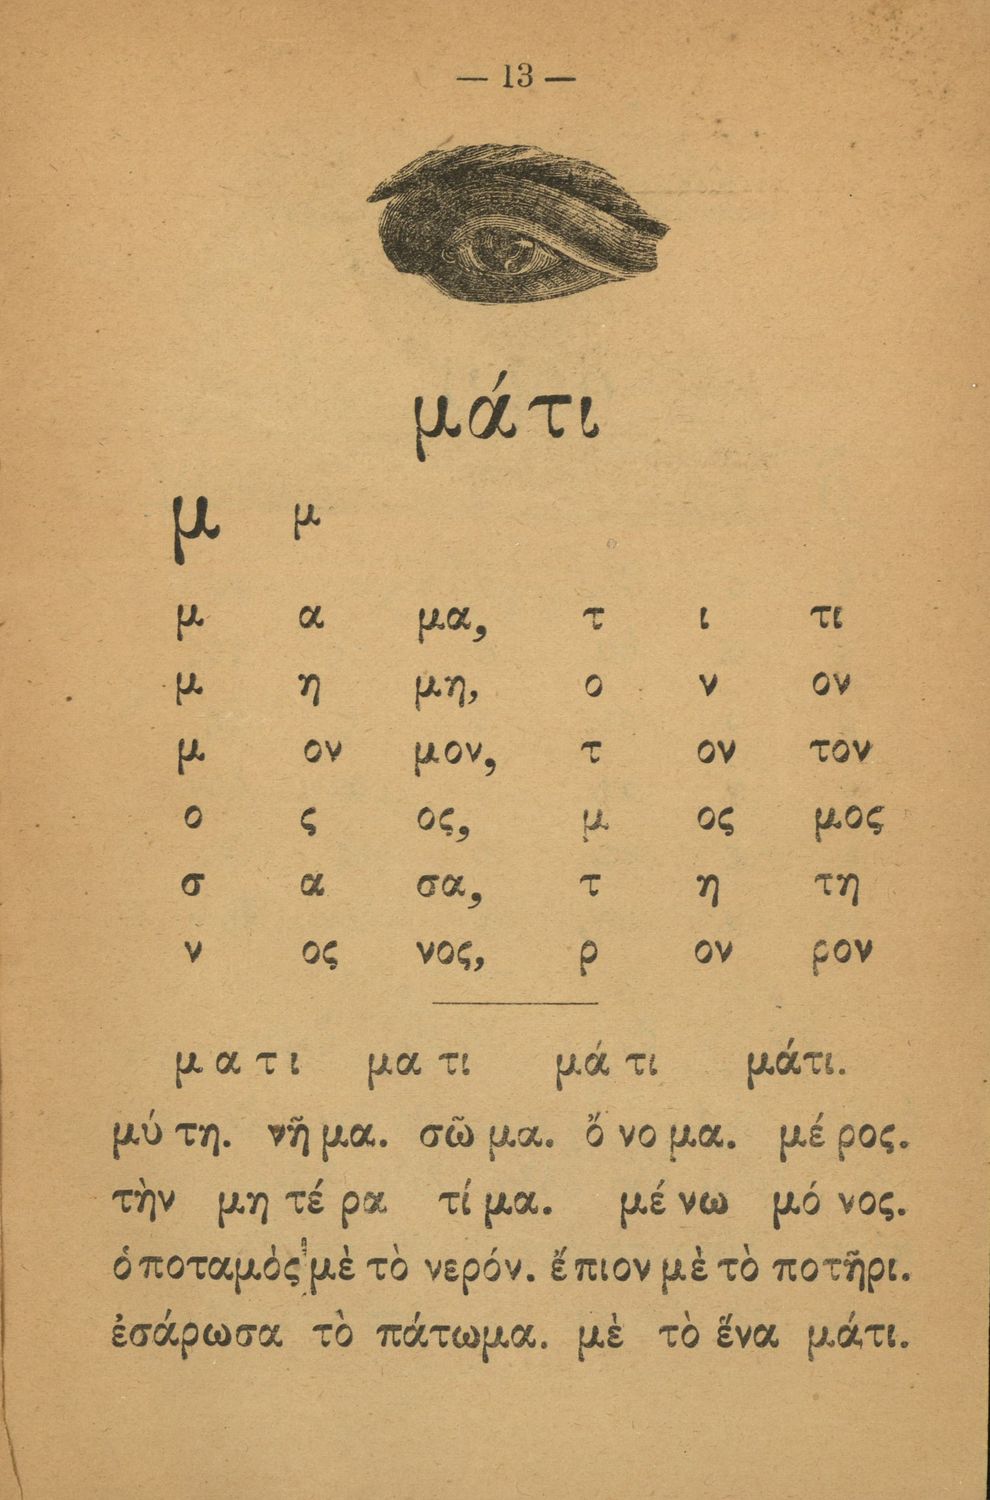 — 13 —
μάτι
μ μ
μ α μα, τ ι τι
μ η μη, ο ν ον
μ ον μον, τ ον τον
ο ς ος, μ ος μος
σ α σα, τ η τη
ν ος νος, ρ ον ρον
μ α τ ι μα τι μά τι μάτι.
μύ τη. νῆ μα. σῶ μα. ὄ νο μα. μέ ρος.
τὴν μη τέ ρα τί μα. μέ νω μό νος.
ὁ ποταμὸς μὲ τὸ νερόν. ἔπιον μὲ τὸ ποτῆρι.
ἐσάρωσα τὸ πάτωμα. μὲ τὸ ἕνα μάτι.